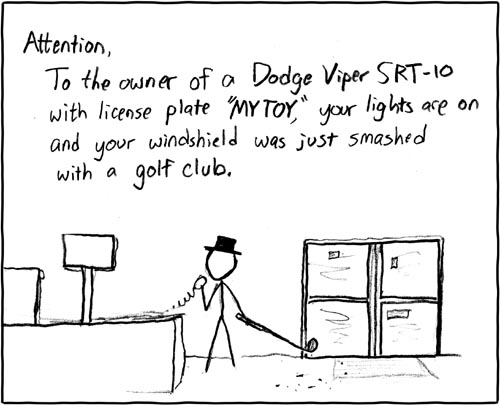 Attention,
To the owner of a Dodge Viper SRT-10
with license plate "MYTOY," your lights are on
and your windshield was just smashed
with a golf club.